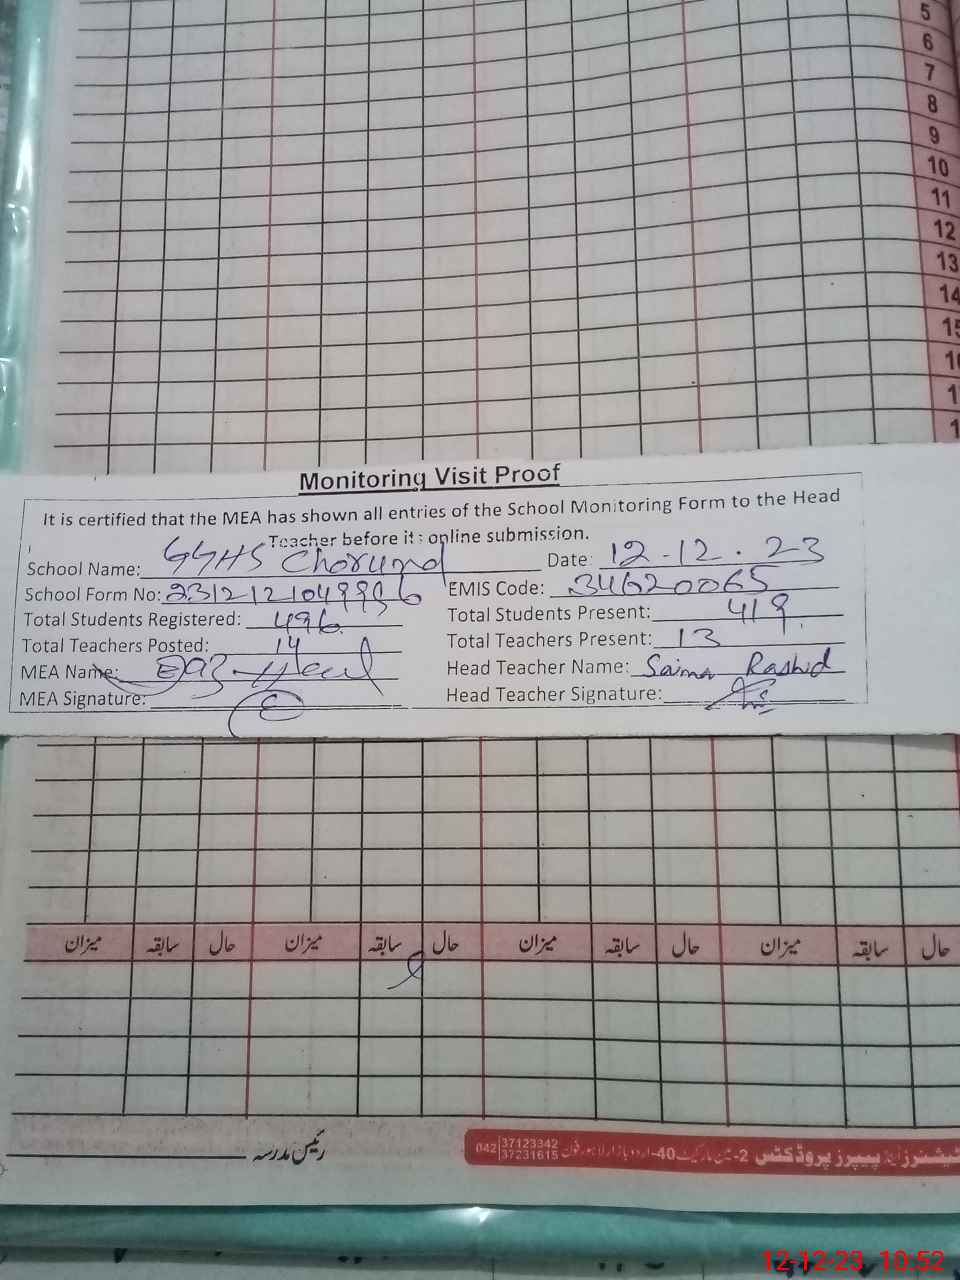 5
6
7
8
9
10
11
12
13
14
15
1
1
1
Monitoring Visit Proof
It is certified that the MEA has shown all entries of the School Monitoring Form to the Head
Teacher before it s online submission.
School Name: GGHS Chorund Date: 12-12.23
School Form No: EMIS Code: 34620065
Total Students Registered: 496 Total Students Present: 419
Total Teachers Posted: 14 Total Teachers Present: 13
MEA Name: Head Teacher Name: Saima Rashid
MEA Signature: Head Teacher Signature:
حال سابقہ میزان حال سابقہ میزان حال سابقہ میزان حال سابقہ میزان
رئیس مدرسہ
پیپرز پروڈکٹس 2- مین مارکیٹ 40-اردو بازار لاہور فون 042 37123342
37231615
12-12-23 10:52